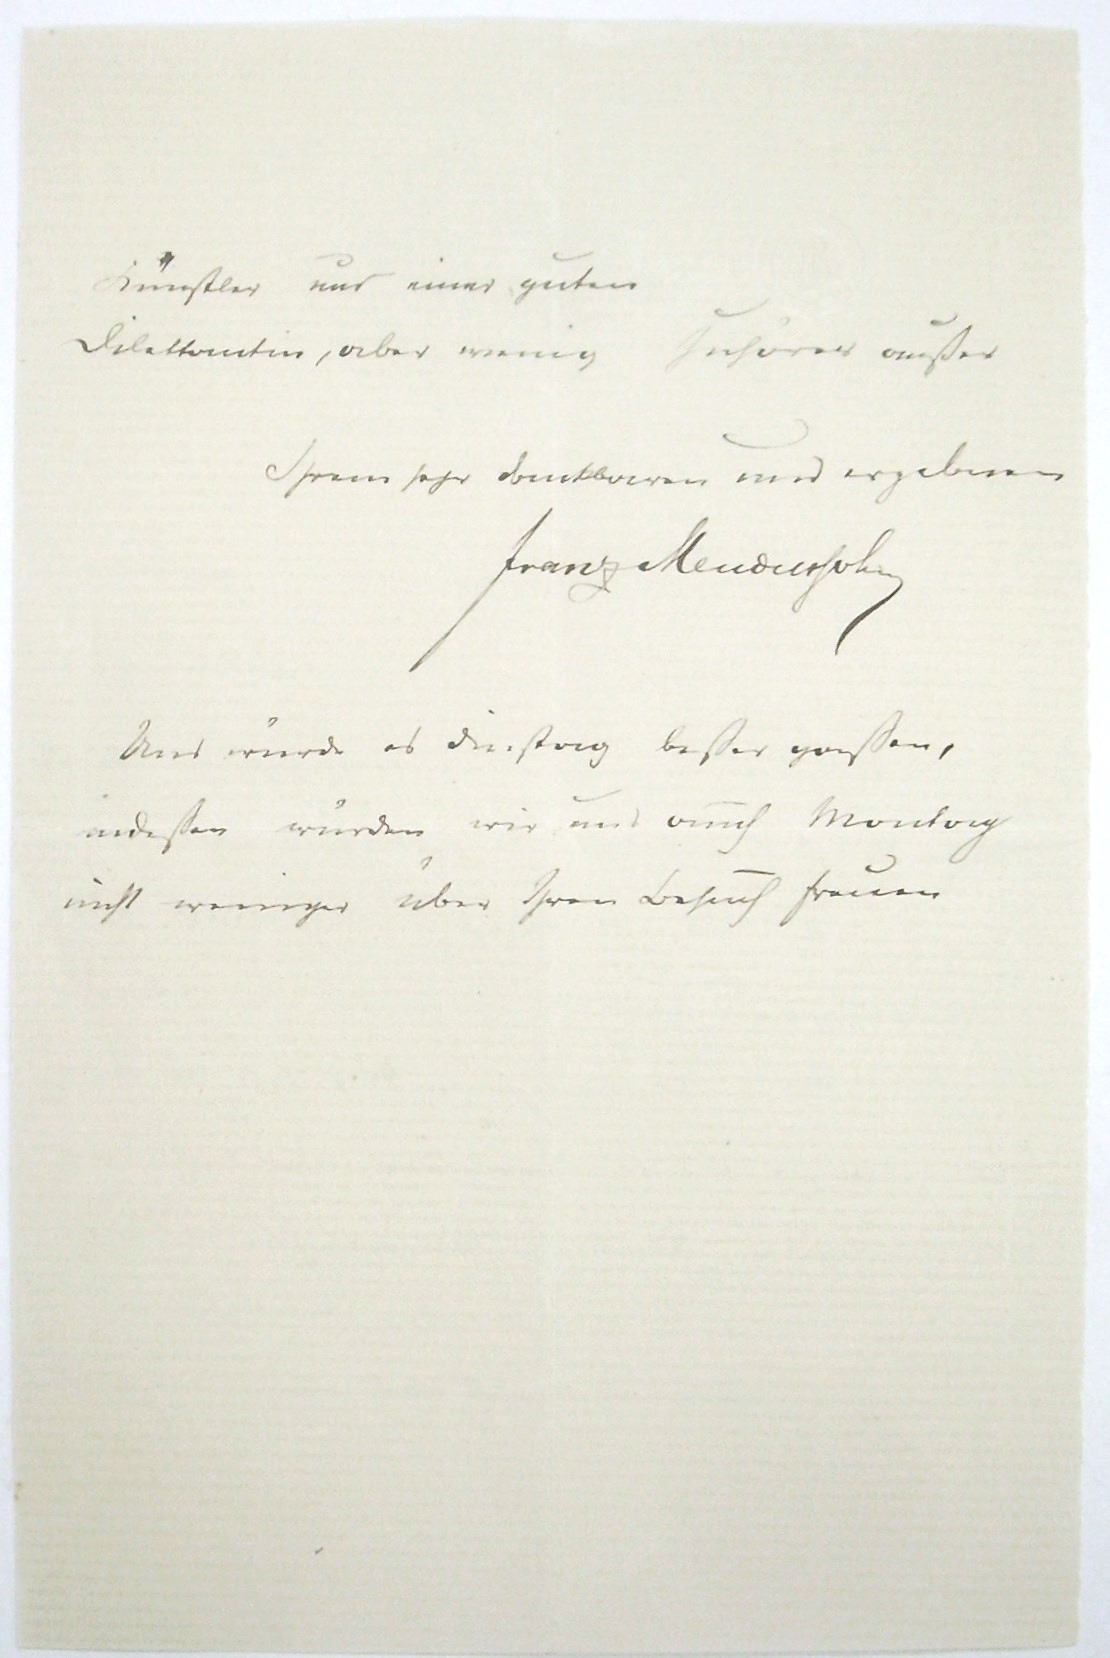 Künstler und einer guten
Dilettantin, aber wenig Zuhörer außer
Ihrem sehr dankbaren und ergebenen
Franz Mendelssohn
Uns würde es Dinstag besser passen,
indessen würden wir uns auch Montag
nicht weniger über Ihren Besuch freuen